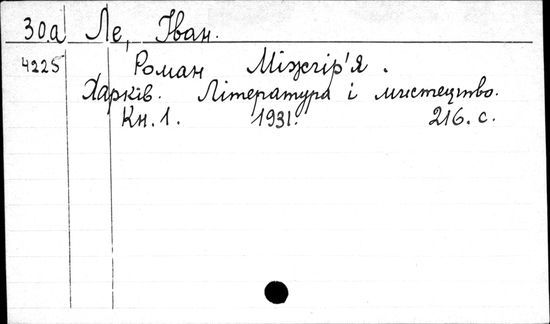 30.а Ле, Іван.
4225 Роман Міжгір'я.
Харків. Література і мистецтво.
Кн. 1. 1931. 216. с.